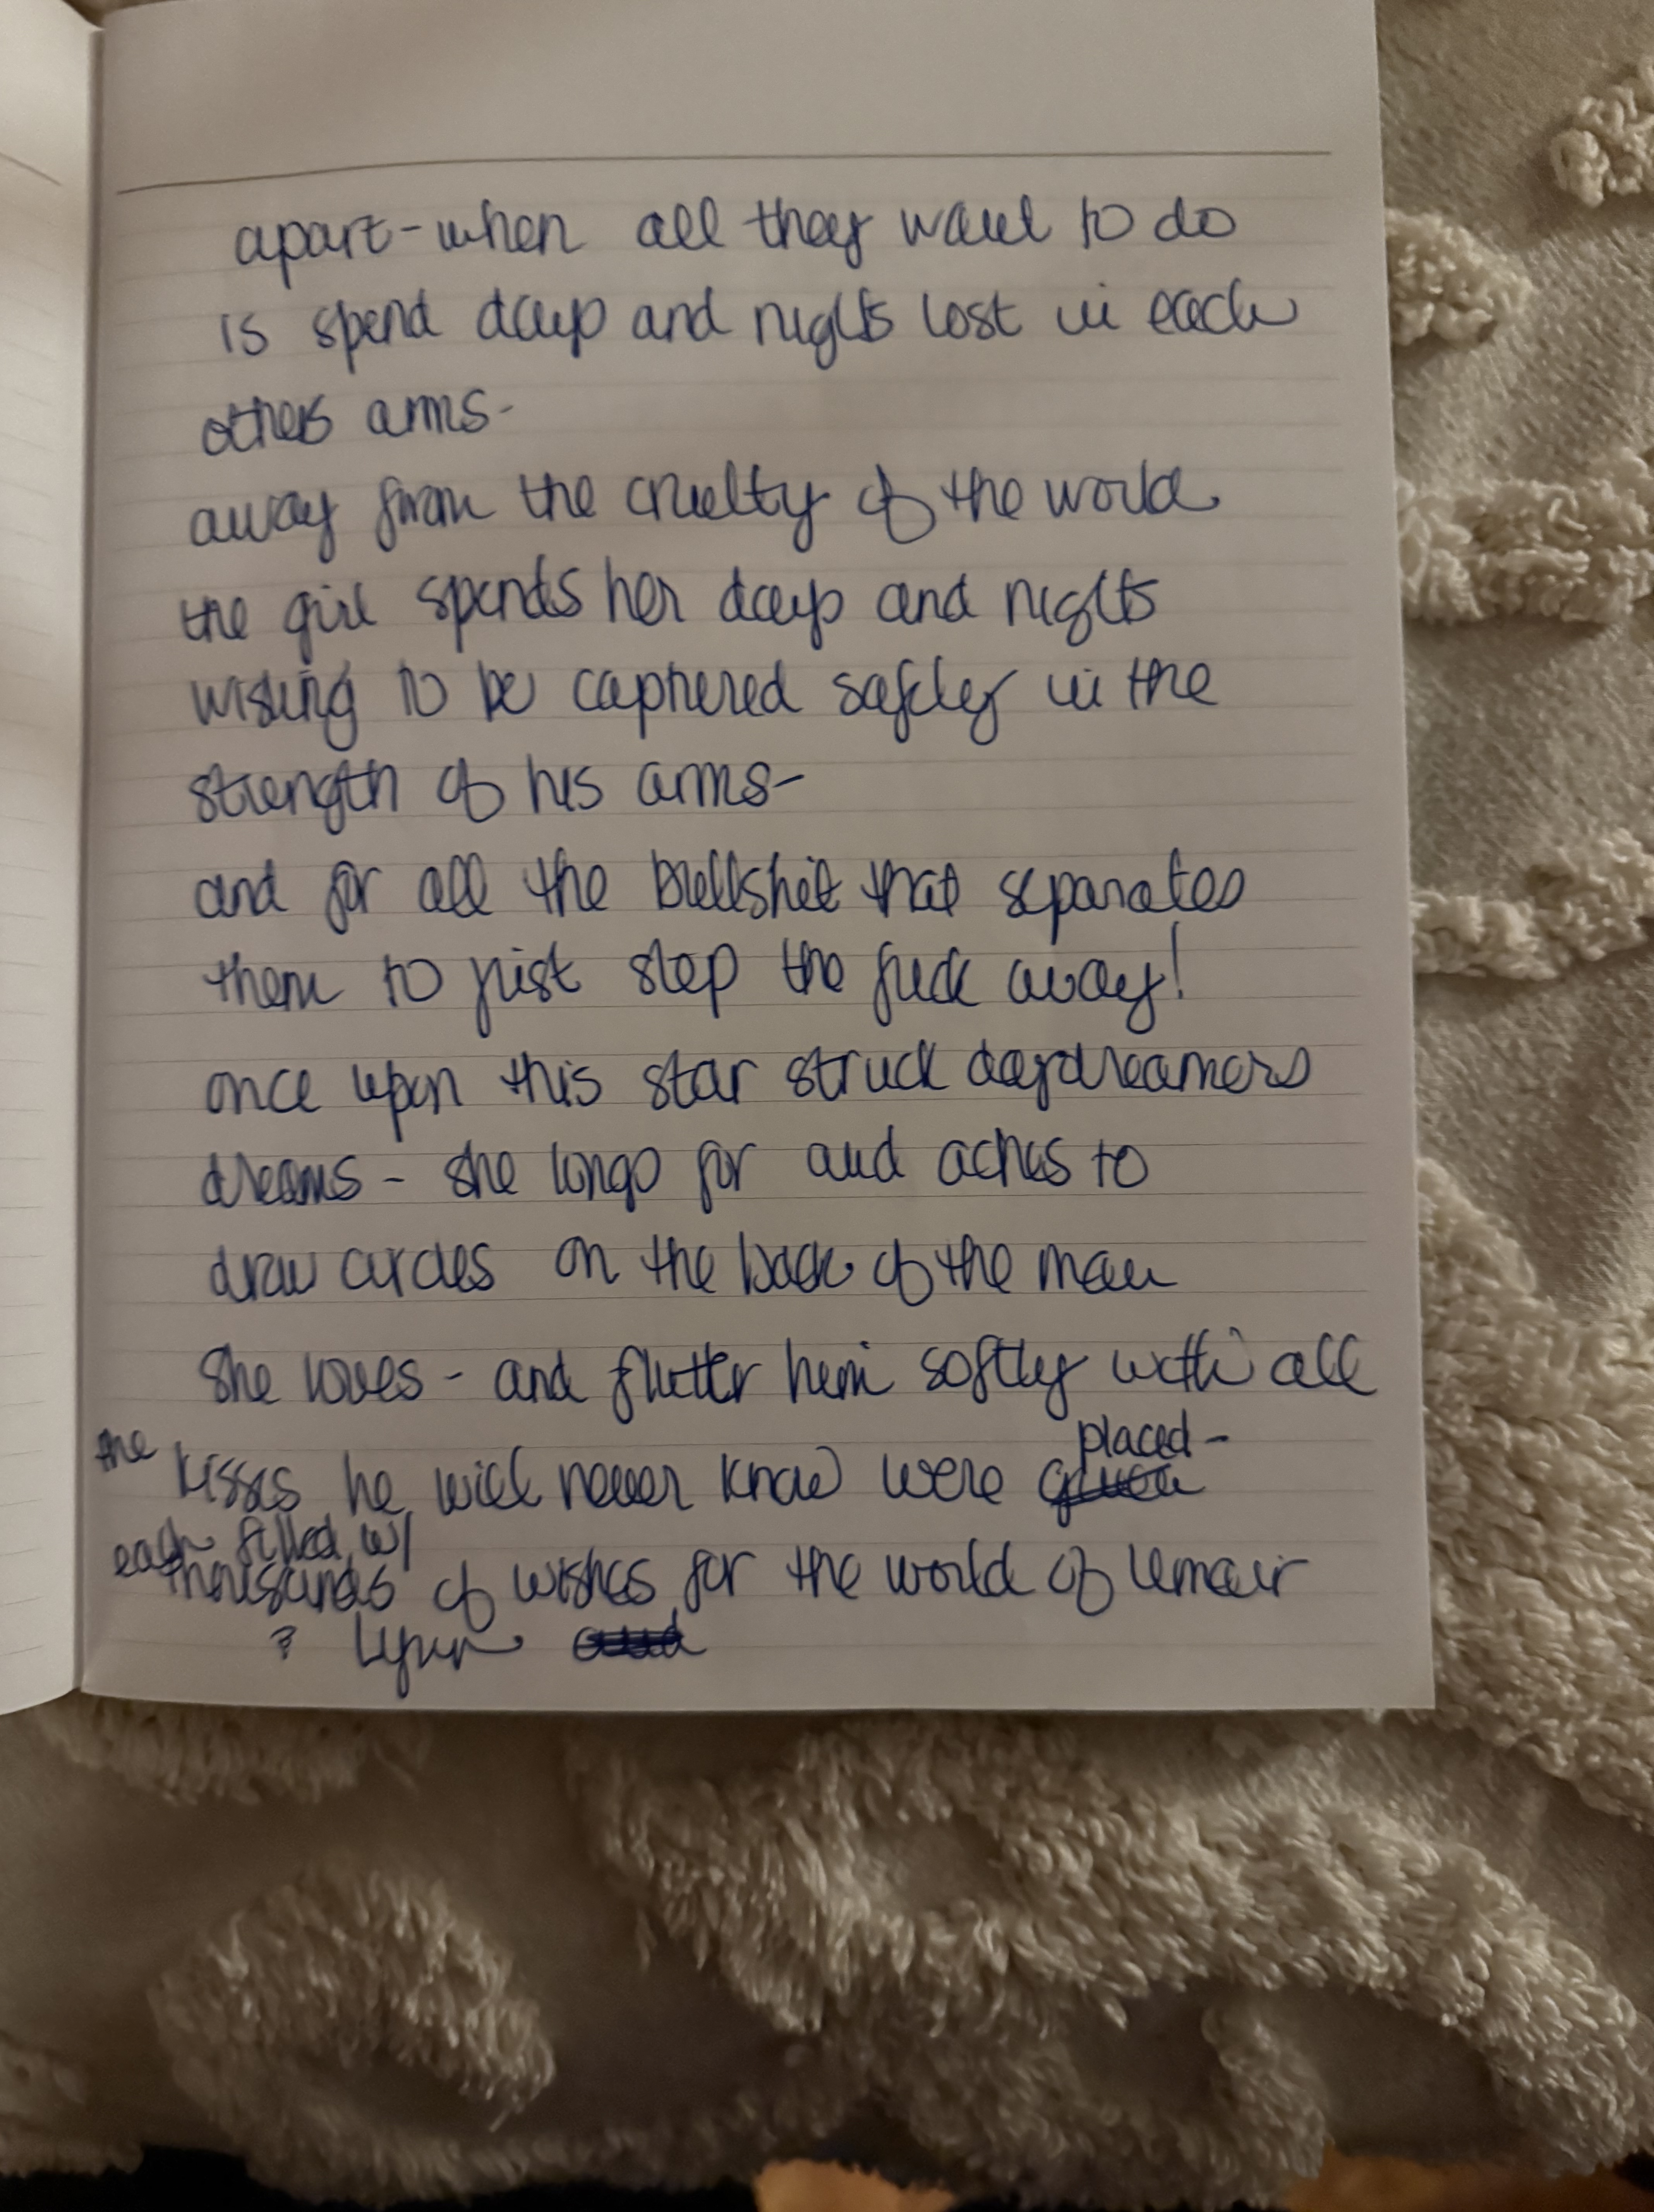 apart - when all they want to do
is spend days and nights lost in each
others arms -
away from the cruelty of the world
the girl spends her days and nights
wishing to be captured safely in the
strength of his arms -
and for all the bullshit that separates
them to just step the fuck away!
once upon this star struck daydreamers
dreams - she longs for and aches to
draw circles on the back of the man
she loves - and flutter him softly with all
the kisses he will never know were placed -
each filled w/
thousands of wishes for the world of
& Lynn